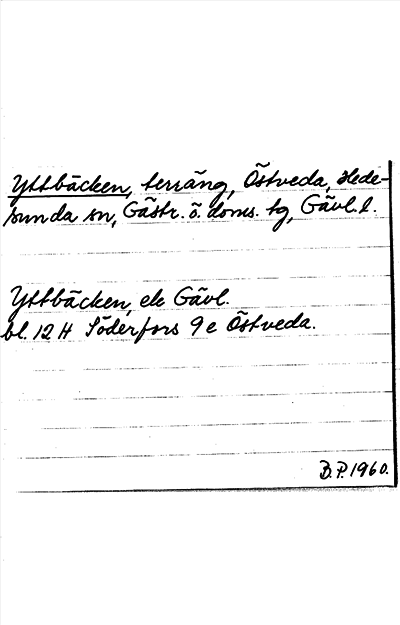 Yttbäcken, terräng, Östveda, Hede-
sunda sn, Gästr. ö. doms. tg, Gävl. l.
Yttbäcken, ek Gävl.
bl. 12 H Söderfors 9 e Östveda.
B.P. 1960.